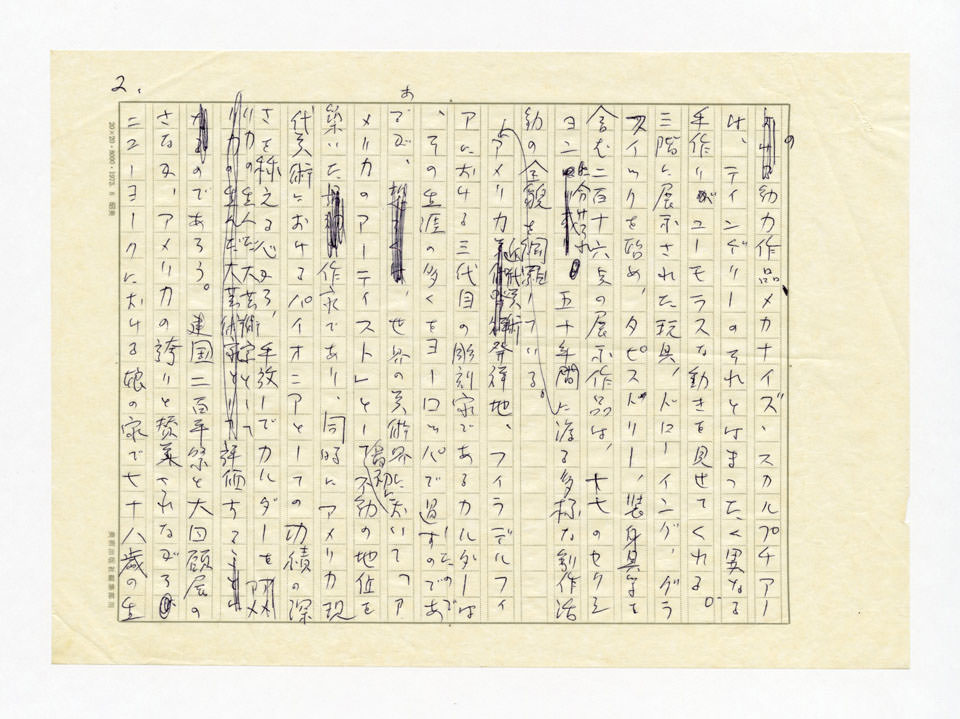 2.
の動力作品メカナイズ、スカルプチアー
は、ティンゲリーのそれとはまったく異なる
手作りがユーモラスな動きを見せてくれる。
三階に展示された玩具、ドローイング、グラ
フィックを始め、タピストリー、装身具等を
含む二百十六点の展示作品は、十七のセクシ
ョンに分けられ 五十年間に渉る多様な創作活
動の全貌を網羅している。
アメリカ近代美術発祥地、フィラデルフィ
アにおける三代目の彫刻家であるカルダーは
、その生涯の多くをヨーロッパで過したのであ
るが、世界の美術界に於いて「ア
メリカのアーティスト」として不動の地位を
築いた 作家であり、同時にアメリカ現
代美術におけるパイオニアとしての功績の深
さを称える心から、手放しでカルダーを
リカの生んだ大芸術家として評価
のであろう。建国二百年祭と大回顧展の
さなか、アメリカの誇りと賛美されながら
ニューヨークにおける娘の家で七十八歳の生
20×20